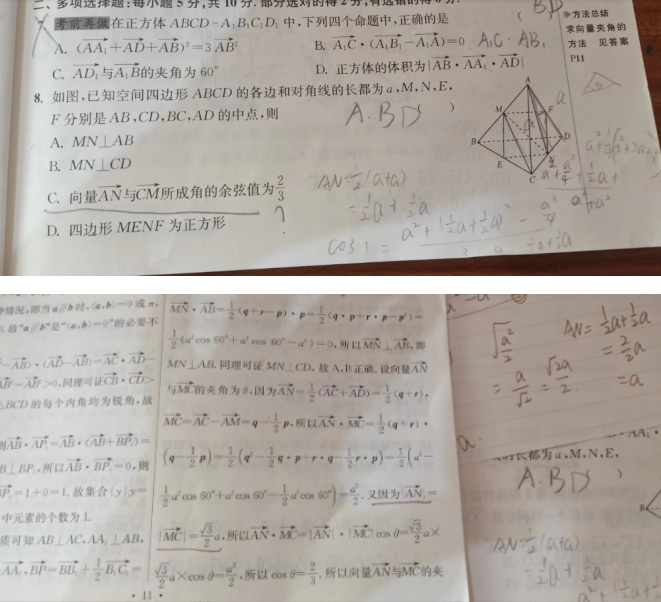 二、多项选择题:每小题 5 分,共 10 分.部分选对的得 2 分,有选错的得 0 分.
考前再做 在正方体 ABCD-A₁B₁C₁D₁ 中,下列四个命题中,正确的是
A. (AA₁+AD+AB)²=3AB²
B. A₁C·(A₁B₁-A₁A)=0
A₁C·AB₁
C. AD₁与A₁B的夹角为 60°
D. 正方体的体积为|AB·AA₁·AD|
8. 如图,已知空间四边形 ABCD 的各边和对角线的长都为 a,M,N,E,
F 分别是 AB,CD,BC,AD 的中点,则 ( )
A.BD
A. MN⊥AB
B. MN⊥CD
C. 向量AN与CM所成角的余弦值为2/3
D. 四边形 MENF 为正方形
?
AN=1/2(a+a)
=1/2a+1/2a
方法总结
求向量夹角的
方法 见答案
P11
A
M
F
B
D
E
C
情况,即当 a∥b 时,⟨a,b⟩=0 或 π,
故“a∥b”是“⟨a,b⟩=0”的必要不
-AB)·(AD-AB)=AC·AD-
>0,同理可证CB·CD>
△BCD 的每个内角均为锐角,故
AB·AP=AB·(AB+BP₁)=
B⊥BP,所以AB·BP₁=0,则
=1+0=1.故集合{y|y=
中元素的个数为 1.
质可知 AB⊥AC,AA₁⊥AB,
AA₁,BP=BB₁+1/2B₁C₁=
MN·AB=1/2(q+r-p)·p=1/2(q·p+r·p-p²)=
1/2(a²cos 60°+a²cos 60°-a²)=0,所以MN⊥AB,即
MN⊥AB.同理可证 MN⊥CD,故 A,B 正确.设向量AN
与MC的夹角为θ,因为AN=1/2(AC+AD)=1/2(q+r),
MC=AC-AM=q-1/2p,所以AN·MC=1/2(q+r)·
(q-1/2p)=1/2(q²-1/2q·p+r·q-1/2r·p)=1/2(a²-
1/2a²cos 60°+a²cos 60°-1/2a²cos 60°)=a²/2.又因为|AN|=
|MC|=√3/2a,所以AN·MC=|AN|·|MC|cos θ=√3/2a×
√3/2a×cos θ=a²/2,所以 cos θ=2/3.所以向量AN与MC的夹
·11·
√a²/2
=a/√2=√2a/2
AN=1/2a+1/2a
=2/2a
=a
a.
长都为 a,M,N,E,
A.BD
)
AN=1/2(a+a)
=1/2a+1/2a